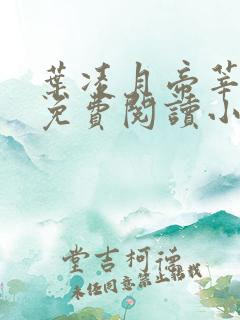 葉凌月帝莘
免費閱讀小
堂吉柯德
未經同意禁止轉載